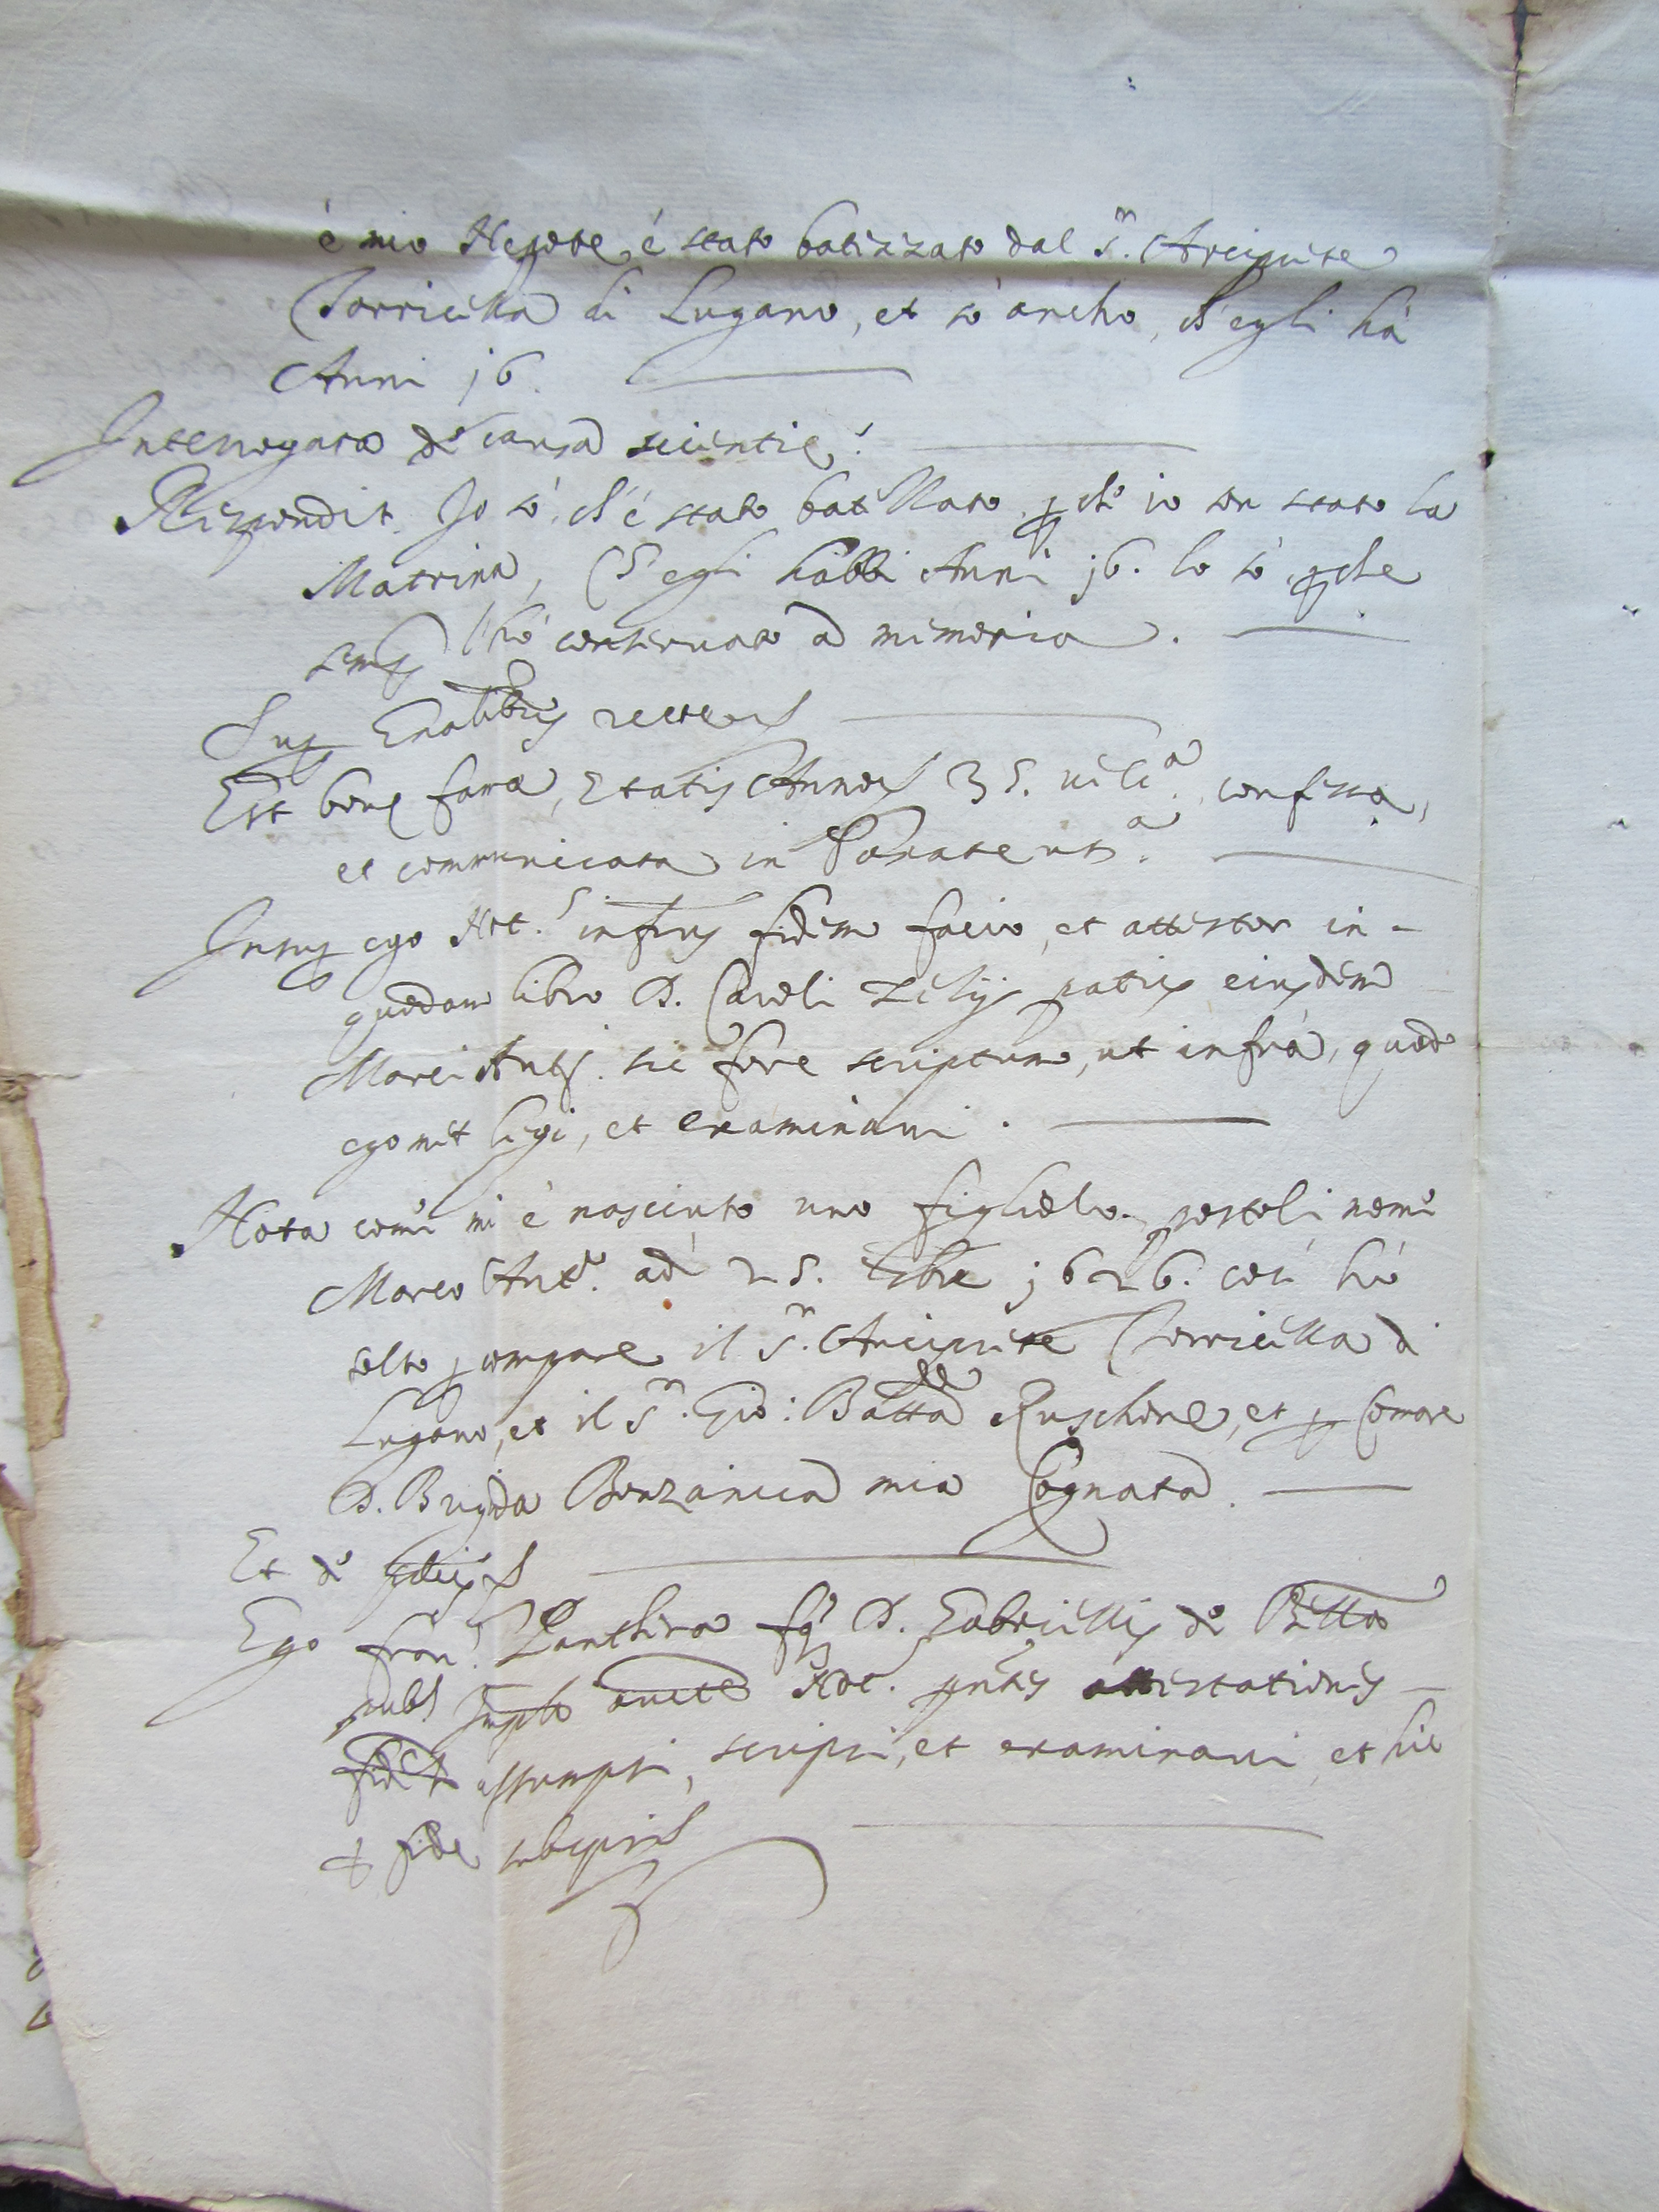 è mio Nepote, è stato batizzato dal S.r Arciprete
Torricella di Lugano, et sò ancho, ch'egli hà
Anni j6.
Interrogata de causa scientie.
Respondit. Io sò, ch'è stato batezzato, p che io son stato la
Matrina, Ch'egli habbi Anni j6. lo sò, pche
semp l'hò conservato a memoria.
Sup gnalibus recte
Est bone fame, etatis Annor 35. vel c.a, confessa,
et communicata in Pascate
Insup ego Not.s infrus fidem facio, et attestor in-
quodam libro D. Caroli patris eiusdem
Marci Ant. sic fore scriptum, ut infrà, quod
egomet legi, et examinavi.
Nota come mi è nasciuto uno figliolo, postoli nome
Marco Ant.o adi 25. j626. così hò
tolto p compare il S.r Arciprete Torricella di
Lugano, et il S.r Gio: Batta Ruschone, et p Comare
D. Brigida Bonzanica mia Cognata.
Et de
Ego Fran.s fq D. Gabrielis de
pub. Imple aucte Not. pntes attestationes
assumpsi, scripsi, et examinavi, et hic
p fide subscripsi